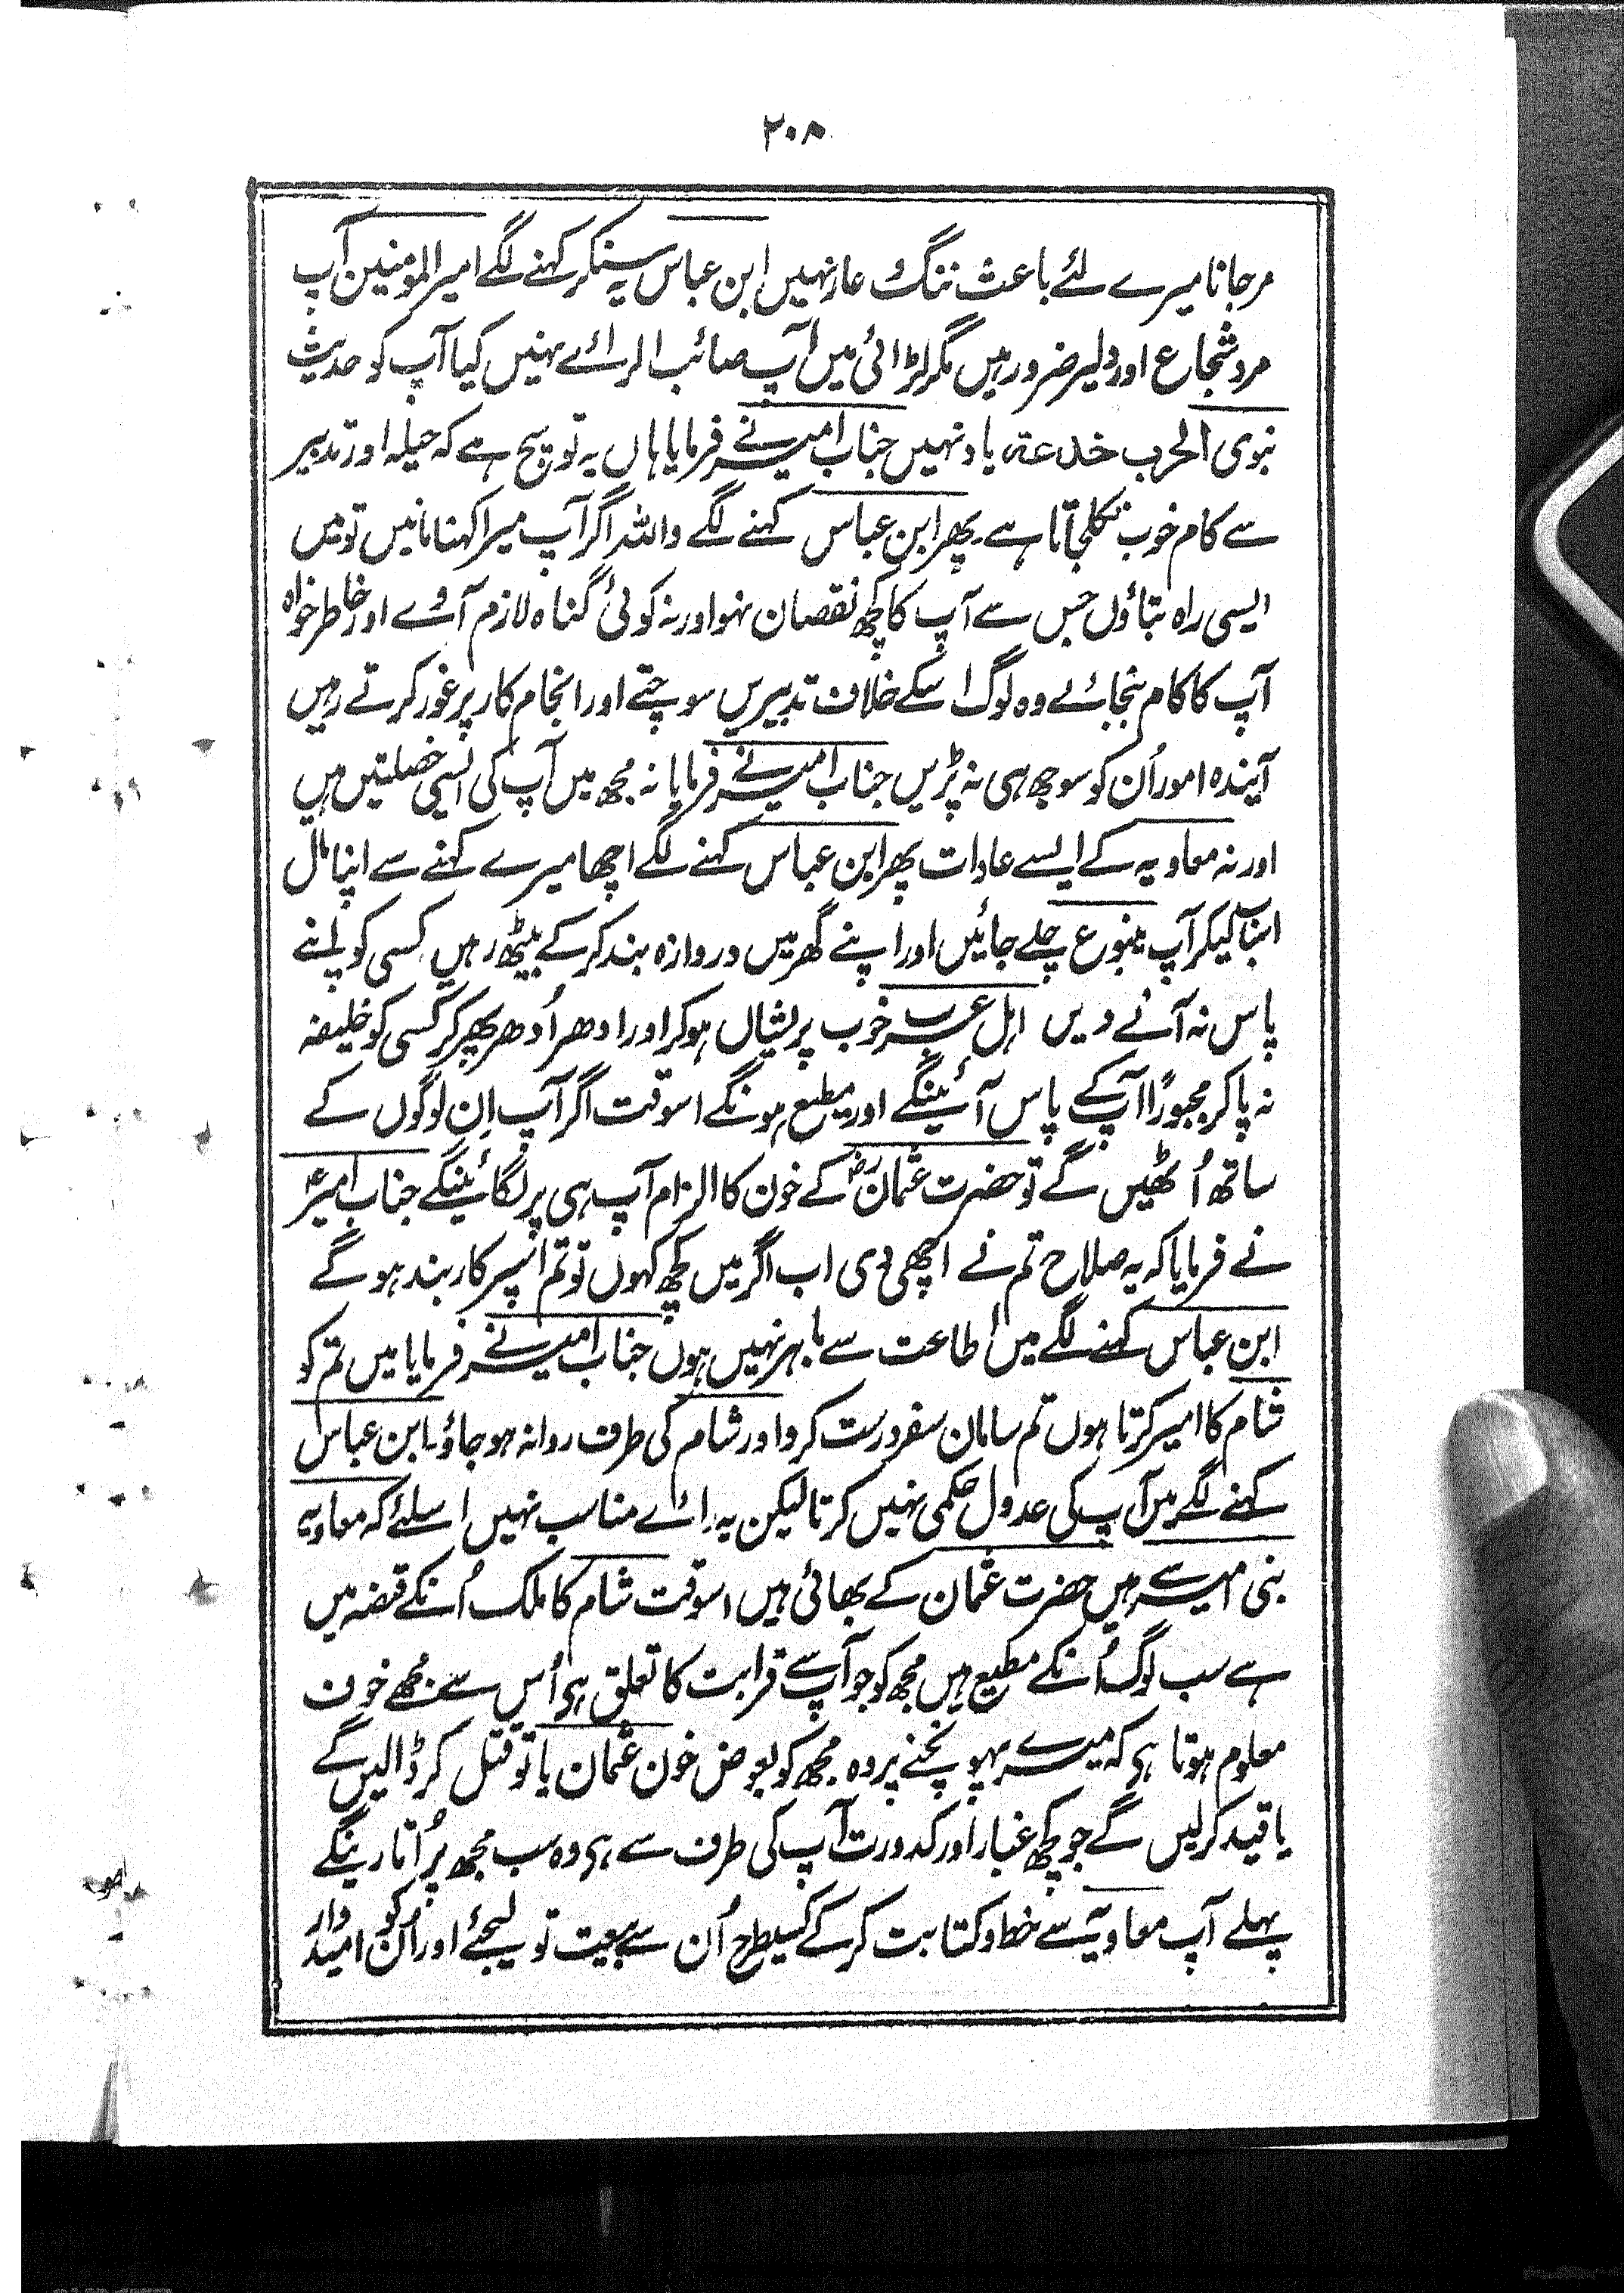 ۲۰۸
مرجانا میرے لئے باعث ننگ و عار نہیں ابن عباس یہ سنکر کہنے لگے امیر المومنین آپ
مرد شجاع اور دلیر ضرور ہیں مگر لڑائی میں آپ صائب الرائے نہیں کیا آپ کو حدیث
نبوی الحرب خدعۃ یاد نہیں جناب امیر نے فرمایا ہاں یہ تو سچ ہے کہ حیلہ اور تدبیر
سے کام خوب نکلجاتا ہے۔ پھر ابن عباس کہنے لگے واللہ اگر آپ میرا کہنا مانیں تو میں
ایسی راہ بتاؤں جس سے آپ کا کچھ نقصان نہو اور نہ کوئی گناہ لازم آوے اور خاطر خواہ
آپ کا کام بنجائے وہ لوگ اسکے خلاف تدبیریں سوچتے اور انجام کار پر غور کرتے رہیں
آیندہ امور اُن کو سوجھ ہی نہ پڑیں جناب امیر نے فرمایا نہ مجھ میں آپ کی ایسی خصلتیں ہیں
اور نہ معاویہ کے ایسے عادات پھر ابن عباس کہنے لگے اچھا میرے کہنے سے اپنا مال
اسباب لیکر آپ ینبوع چلے جائیں اور اپنے گھر میں دروازہ بند کر کے بیٹھ رہیں کسی کو اپنے
پاس نہ آنے دیں اہل عرب خوب پریشاں ہو کر اور ادھر اُدھر پھر کر کسی کو خلیفہ
نہ پا کر مجبوراً آپ کے پاس آئینگے اور مطیع ہونگے اسوقت اگر آپ اِن لوگوں کے
ساتھ اُٹھیں گے تو حضرت عثمانؓ کے خون کا الزام آپ ہی پر لگائینگے جناب امیرؑ
نے فرمایا کہ یہ صلاح تم نے اچھی دی اب اگر میں کچھ کہوں تو تم اسپر کاربند ہو گے
ابن عباس کہنے لگے میں اطاعت سے باہر نہیں ہوں جناب امیر نے فرمایا میں تم کو
شام کا امیر کرتا ہوں تم سامان سفر درست کرو اور شام کی طرف روانہ ہو جاؤ۔ ابن عباس
کہنے لگے میں آپ کی عدول حکمی نہیں کرتا لیکن یہ رائے مناسب نہیں اسلئے کہ معاویہ
بنی امیہ سے ہیں حضرت عثمان کے بھائی ہیں اسوقت شام کا ملک اُنکے قبضہ میں
ہے سب لوگ اُنکے مطیع ہیں مجھ کو جو آپ سے قرابت کا تعلق ہی اُس سے مجھے خوف
معلوم ہوتا ہی کہ میرے پہونچنے پر وہ مجھ کو بعوض خون عثمان یا تو قتل کر ڈالیں گے
یا قید کر لیں گے جو کچھ غبار اور کدورت آپ کی طرف سے ہی وہ سب مجھ پر اُتارینگے
پہلے آپ معاویہ سے خط و کتابت کر کے کسیطرح اُن سے بیعت تو لیجئے اور اُن کو امیدوار